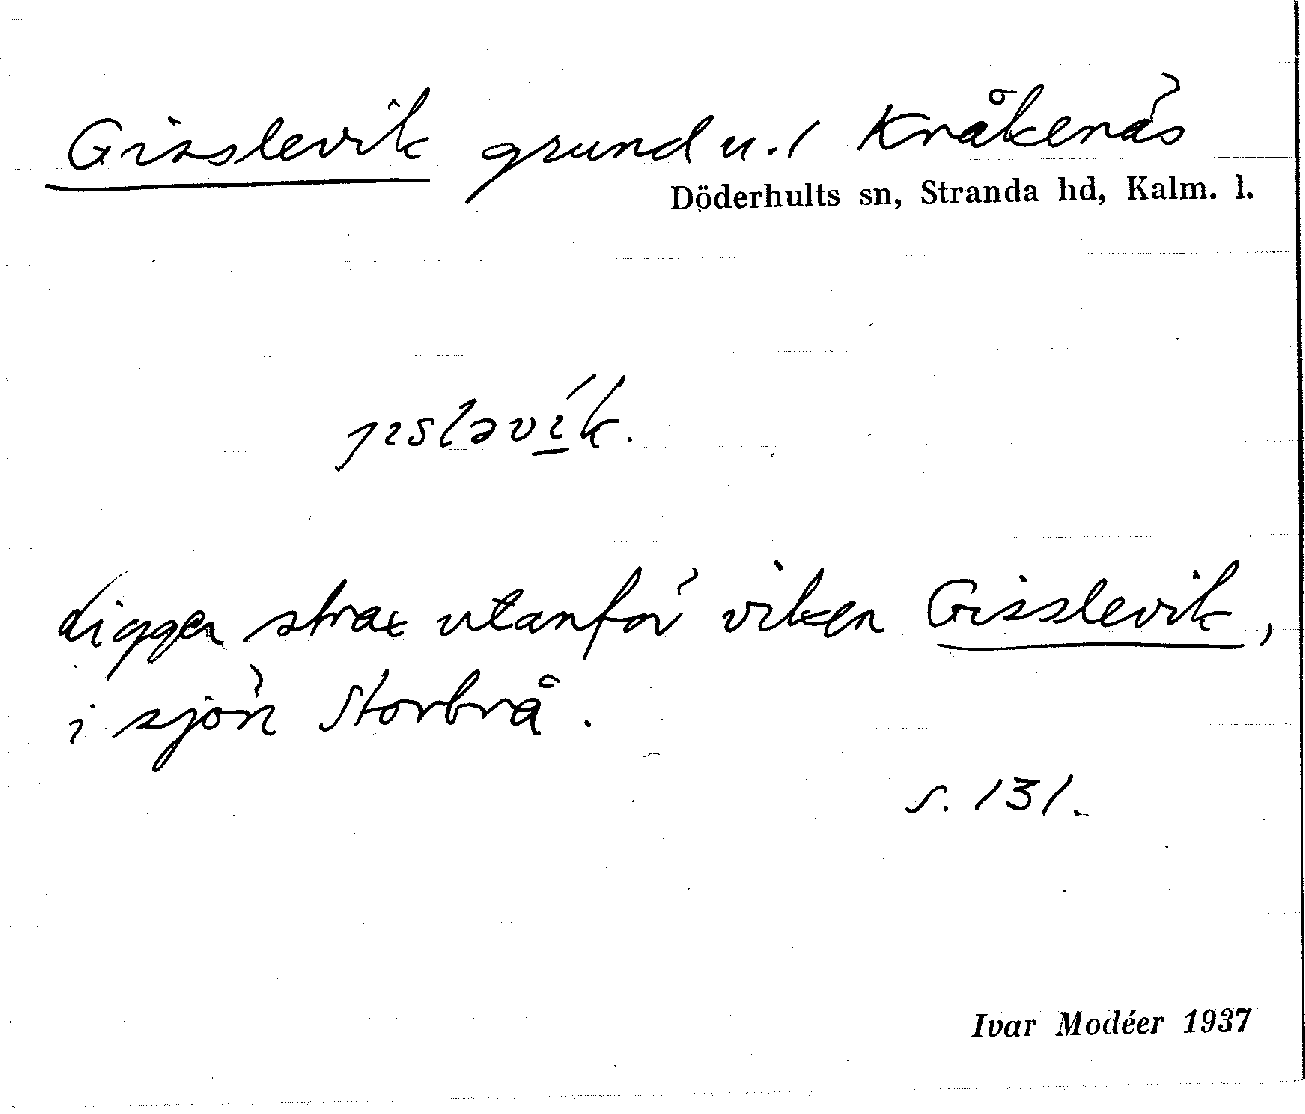 Gisslevik grund u. / Kråkenäs
Döderhults sn, Stranda hd, Kalm. l.
jıslavı́k.
Ligger strax utanför viken Gisslevik,
i sjön Storbrå.
s. 131.
Ivar Modéer 1937